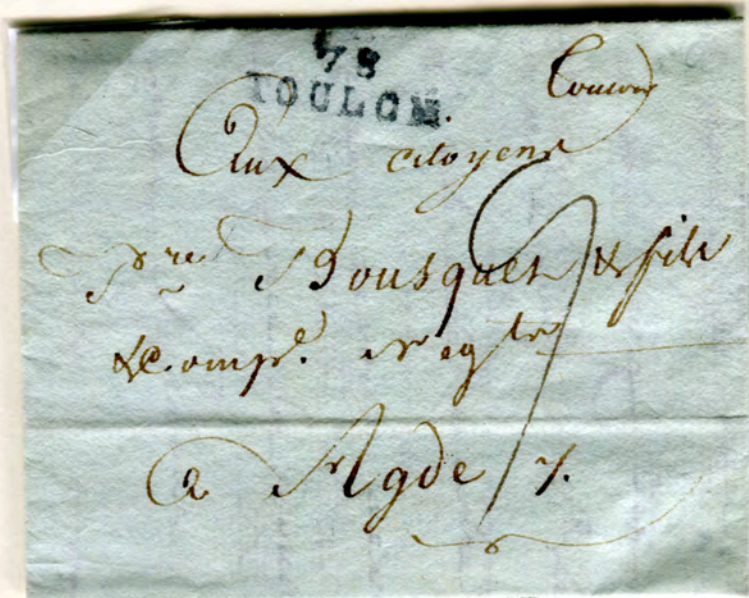 78
TOULON
Aux citoyens
Pre Bousquet & fils
& Compe. negts
a Agde 7.